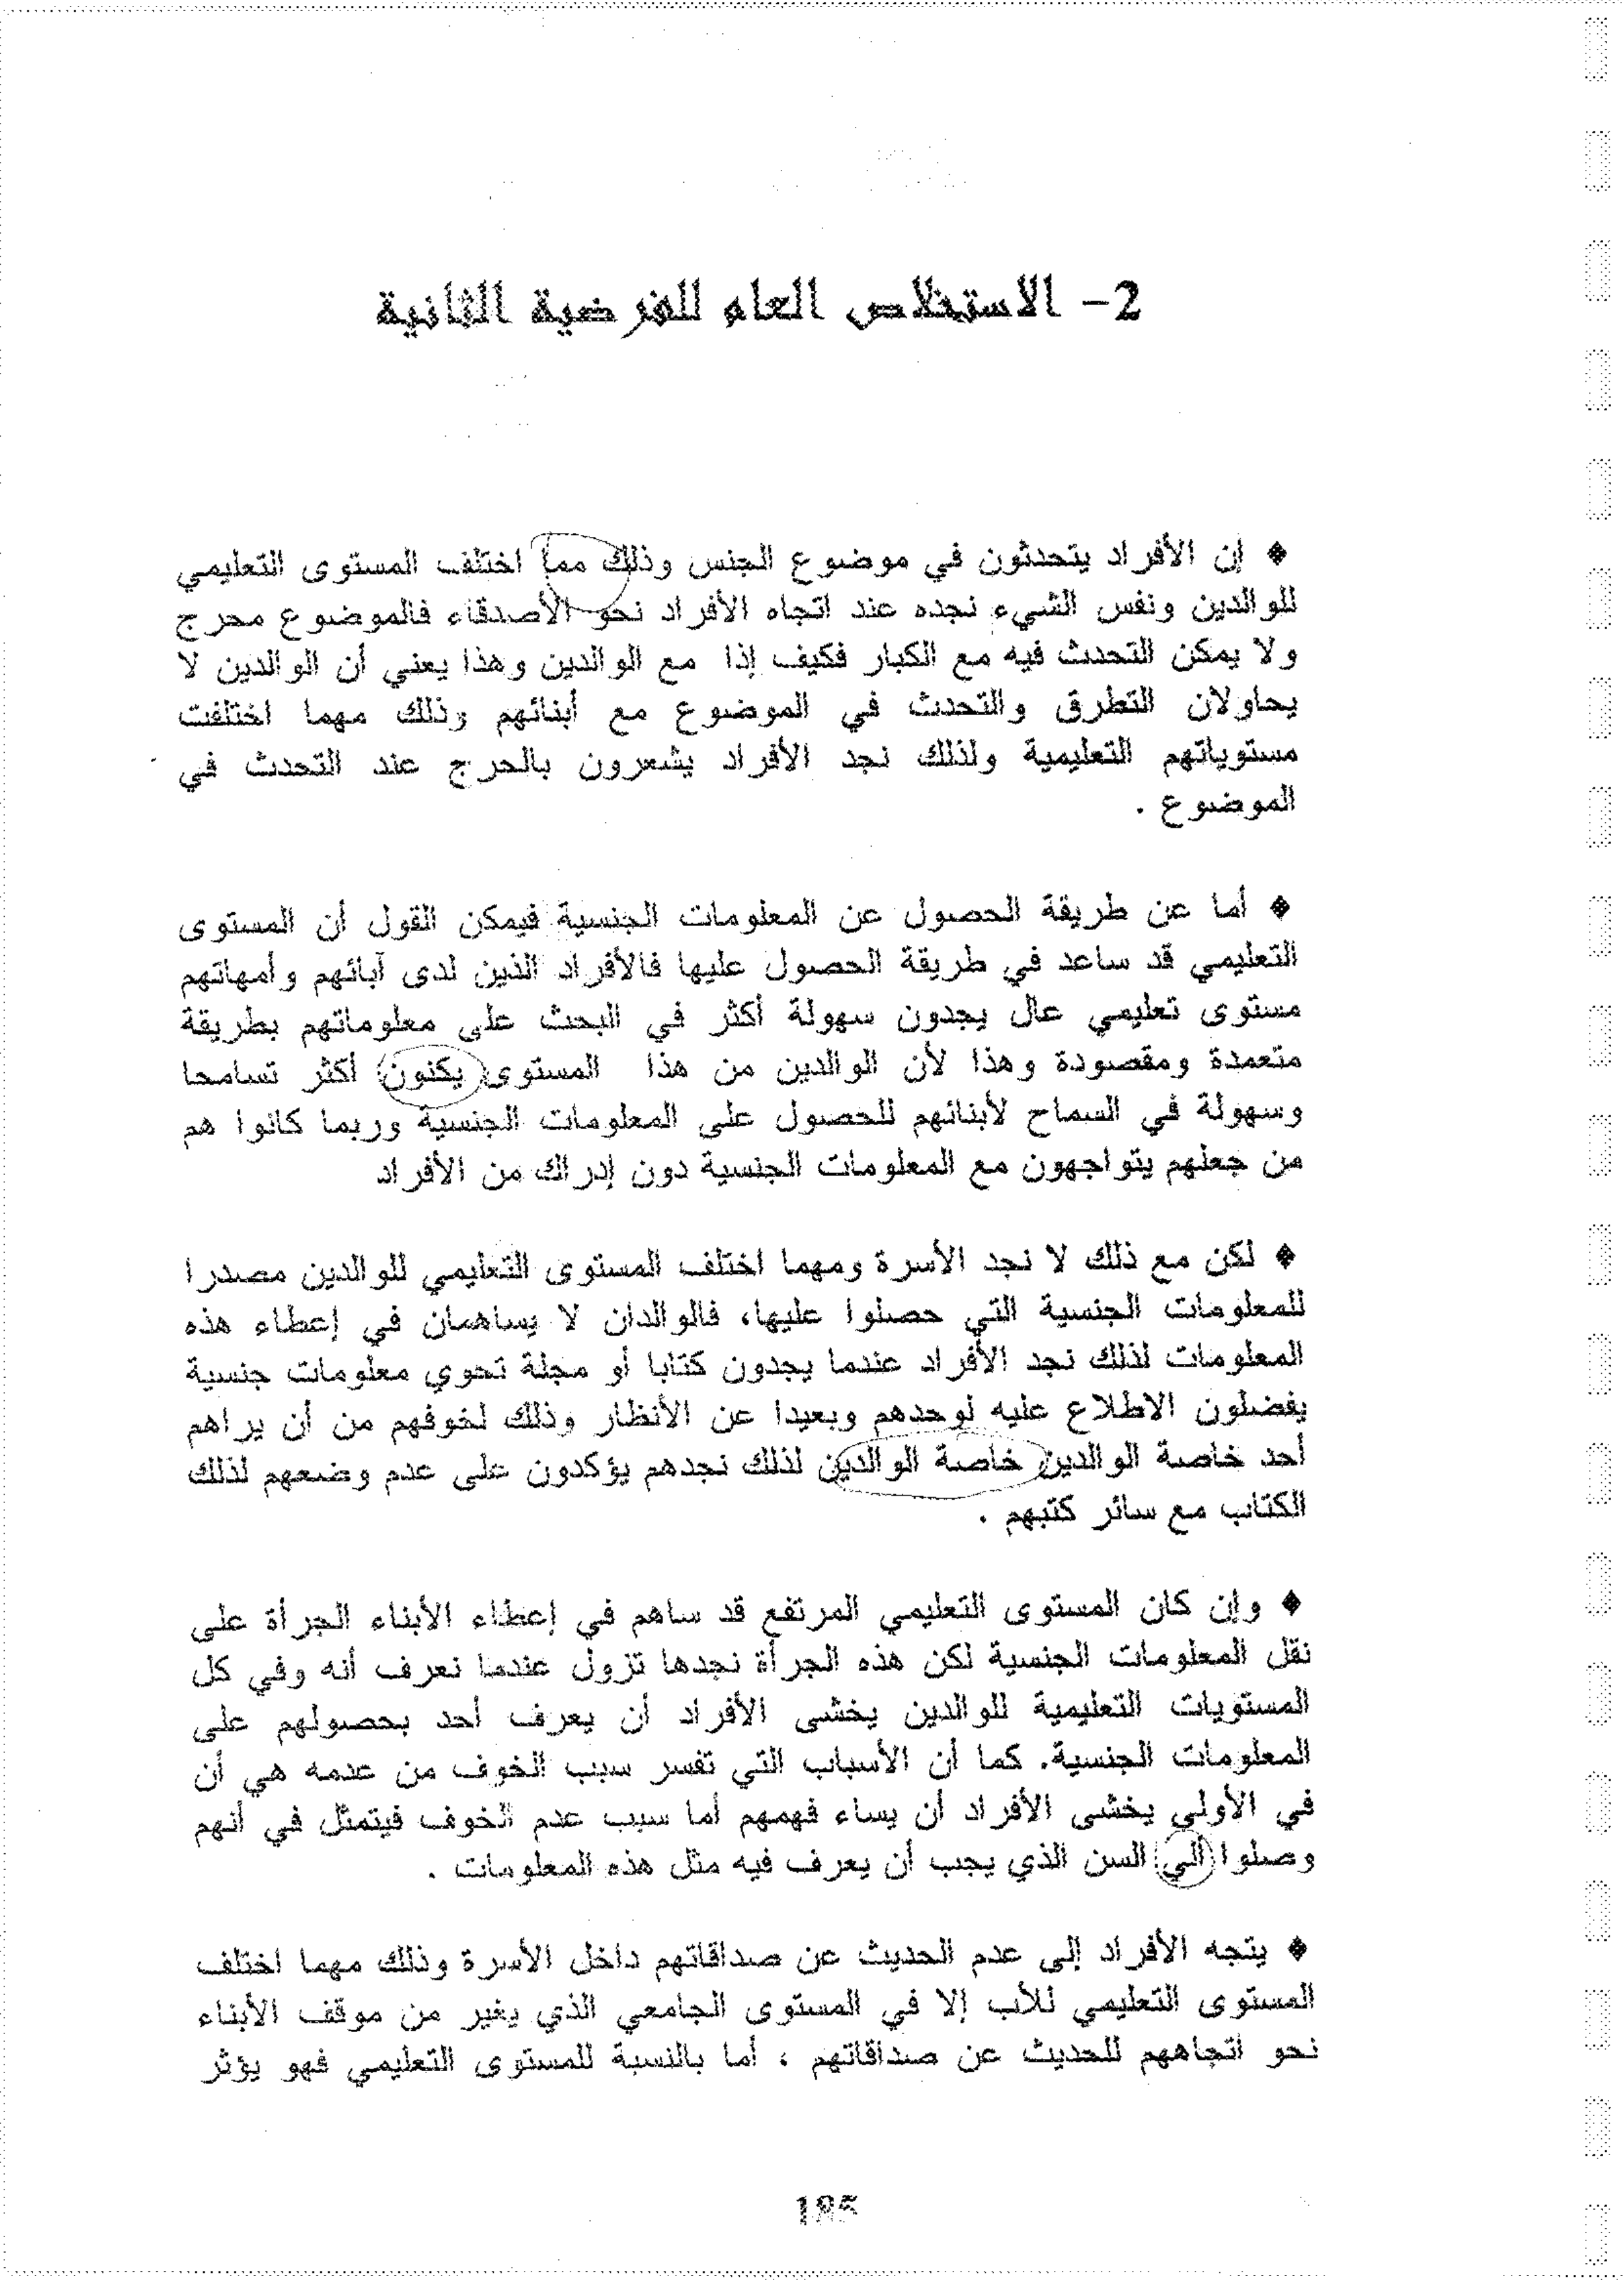 2- الاستخلاص العام للفرضية الثانية
♦ إن الأفراد يتحدثون في موضوع الجنس وذلك مما اختلف المستوى التعليمي
للوالدين ونفس الشيء نجده عند اتجاه الأفراد نحو الأصدقاء فالموضوع محرج
ولا يمكن التحدث فيه مع الكبار فكيف إذا مع الوالدين وهذا يعني أن الوالدين لا
يحاولان التطرق والتحدث في الموضوع مع أبنائهم وذلك مهما اختلفت
مستوياتهم التعليمية ولذلك نجد الأفراد يشعرون بالحرج عند التحدث في
الموضوع .
♦ أما عن طريقة الحصول عن المعلومات الجنسية فيمكن القول أن المستوى
التعليمي قد ساعد في طريقة الحصول عليها فالأفراد الذين لدى آبائهم وأمهاتهم
مستوى تعليمي عال يجدون سهولة أكثر في البحث على معلوماتهم بطريقة
متعمدة ومقصودة وهذا لأن الوالدين من هذا المستوى يكنون أكثر تسامحا
وسهولة في السماح لأبنائهم للحصول على المعلومات الجنسية وربما كانوا هم
من جعلهم يتواجهون مع المعلومات الجنسية دون إدراك من الأفراد
♦ لكن مع ذلك لا نجد الأسرة ومهما اختلف المستوى التعليمي للوالدين مصدرا
للمعلومات الجنسية التي حصلوا عليها، فالوالدان لا يساهمان في إعطاء هذه
المعلومات لذلك نجد الأفراد عندما يجدون كتابا أو مجلة تحوي معلومات جنسية
يفضلون الاطلاع عليه لوحدهم وبعيدا عن الأنظار وذلك لخوفهم من أن يراهم
أحد خاصة الوالدين خاصة الوالدين لذلك نجدهم يؤكدون على عدم وضعهم لذلك
الكتاب مع سائر كتبهم .
♦ وإن كان المستوى التعليمي المرتفع قد ساهم في إعطاء الأبناء الجرأة على
نقل المعلومات الجنسية لكن هذه الجرأة نجدها تزول عندما نعرف أنه وفي كل
المستويات التعليمية للوالدين يخشى الأفراد أن يعرف أحد بحصولهم على
المعلومات الجنسية. كما أن الأسباب التي تفسر سبب الخوف من عدمه هي أن
في الأولى يخشى الأفراد أن يساء فهمهم أما سبب عدم الخوف فيتمثل في أنهم
وصلوا الي السن الذي يجب أن يعرف فيه مثل هذه المعلومات .
♦ يتجه الأفراد إلى عدم الحديث عن صداقاتهم داخل الأسرة وذلك مهما اختلف
المستوى التعليمي للأب إلا في المستوى الجامعي الذي يغير من موقف الأبناء
نحو اتجاههم للحديث عن صداقاتهم ، أما بالنسبة للمستوى التعليمي فهو يؤثر
185